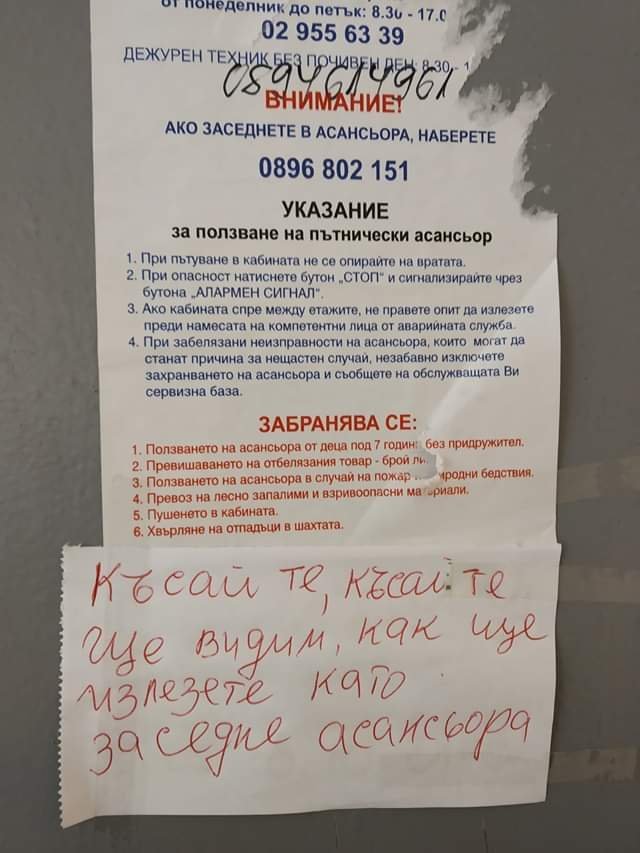 от понеделник до петък: 8.30 - 17.0
02 955 63 39
ДЕЖУРЕН ТЕХНИК БЕЗ ПОЧИВЕН ДЕН: 8.30 - 1
0894614961
ВНИМАНИЕ!
АКО ЗАСЕДНЕТЕ В АСАНСЬОРА, НАБЕРЕТЕ
0896 802 151
УКАЗАНИЕ
за ползване на пътнически асансьор
1. При пътуване в кабината не се опирайте на вратата.
2. При опасност натиснете бутон „СТОП" и сигнализирайте чрез
бутона „АЛАРМЕН СИГНАЛ".
3. Ако кабината спре между етажите, не правете опит да излезете
преди намесата на компетентни лица от аварийната служба.
4. При забелязани неизправности на асансьора, които могат да
станат причина за нещастен случай, незабавно изключете
захранването на асансьора и съобщете на обслужващата Ви
сервизна база.
ЗАБРАНЯВА СЕ:
1. Ползването на асансьора от деца под 7 години без придружител.
2. Превишаването на отбелязания товар - брой ли
3. Ползването на асансьора в случай на пожар и природни бедствия.
4. Превоз на лесно запалими и взривоопасни материали.
5. Пушенето в кабината.
6. Хвърляне на отпадъци в шахтата.
Късай те, късай те
ще видим, как ще
излезете като
заседне асансьора